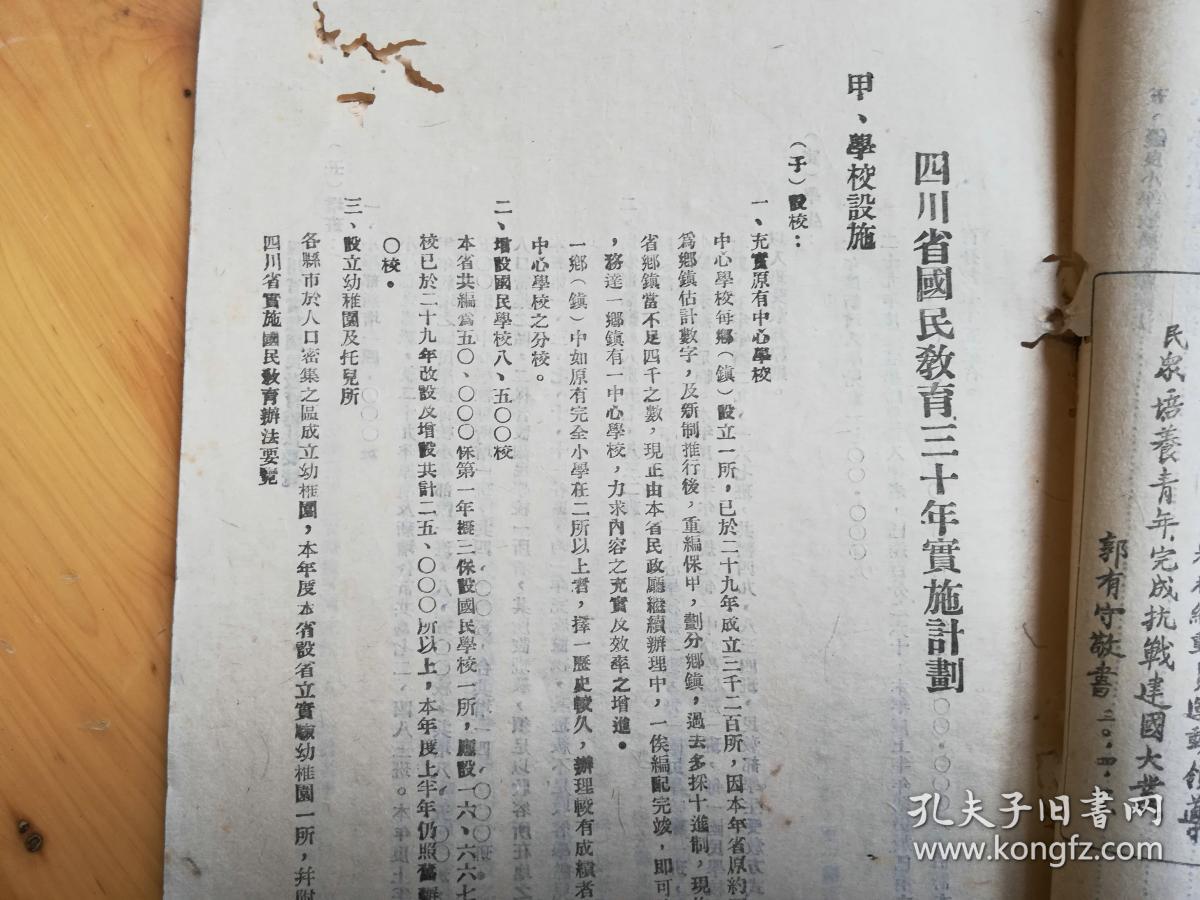 民衆，培養青年，完成抗戰建國大業
郭有守敬書 三〇.四.
四川省國民教育三十年實施計劃
甲、學校設施
（子）設校：
一、充實原有中心學校
中心學校每鄉（鎮）設立一所，已於二十九年成立三千二百所，因本年省原約
爲鄉鎮估計數字，及新制推行後，重編保甲，劃分鄉鎮，過去多採十進制，現
省鄉鎮當不足四千之數，現正由本省民政廳繼續辦理中，一俟編配完竣，即可
，務達一鄉鎮有一中心學校，力求內容之充實及效率之增進。
一鄉（鎮）中如原有完全小學在二所以上者，擇一歷史較久，辦理較有成績者
中心學校之分校。
二、增設國民學校八、五〇〇校
本省共編爲五〇、〇〇〇保第一年擬三保設國民學校一所，應設一六、六六七
校已於二十九年改設及增設共計二五、〇〇〇所以上，本年度上半年仍照舊辦
〇校。
三、設立幼稚園及托兒所
各縣市於人口密集之區成立幼稚園，本年度本省設省立實驗幼稚園一所，幷附
四川省實施國民教育辦法要覽
孔夫子旧书网
www.kongfz.com